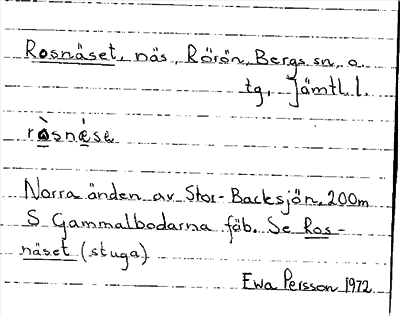 Rosnäset, näs, Rörön, Bergs sn, o.
tg, Jämtl. l.
ròsnése
Norra änden av Stor-Backsjön, 200m
S Gammalbodarna fäb. Se Ros-
näset (stuga)
Ewa Persson 1972